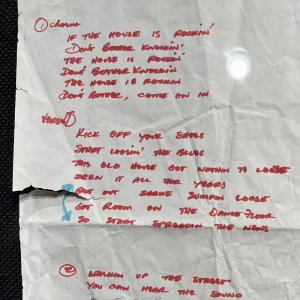 ① Chorus
IF THE HOUSE IS ROCKIN'
DON'T BOTHER KNOCKIN'
THE HOUSE IS ROCKIN'
DON'T BOTHER KNOCKIN
THE HOUSE IS ROCKIN
DON'T BOTHER, COME ON IN
VERSE ①
KICK OFF YOUR SHOES
START LOOSIN' THE BLUES
THIS OLD HOUSE GOT NOTHIN TO LOOSE
SEEN IT ALL FOR YEARS
PUT OUT SHAKE SUMPIN LOOSE
GOT ROOM ON THE DANCE FLOOR
SO START SPREADIN THE NEWS
②
WALKIN UP THE STREET
YOU CAN HEAR THE SOUND